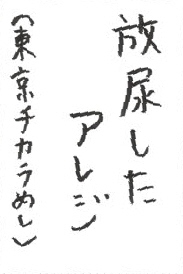 放尿した
アレジ
(東京チカラめし)